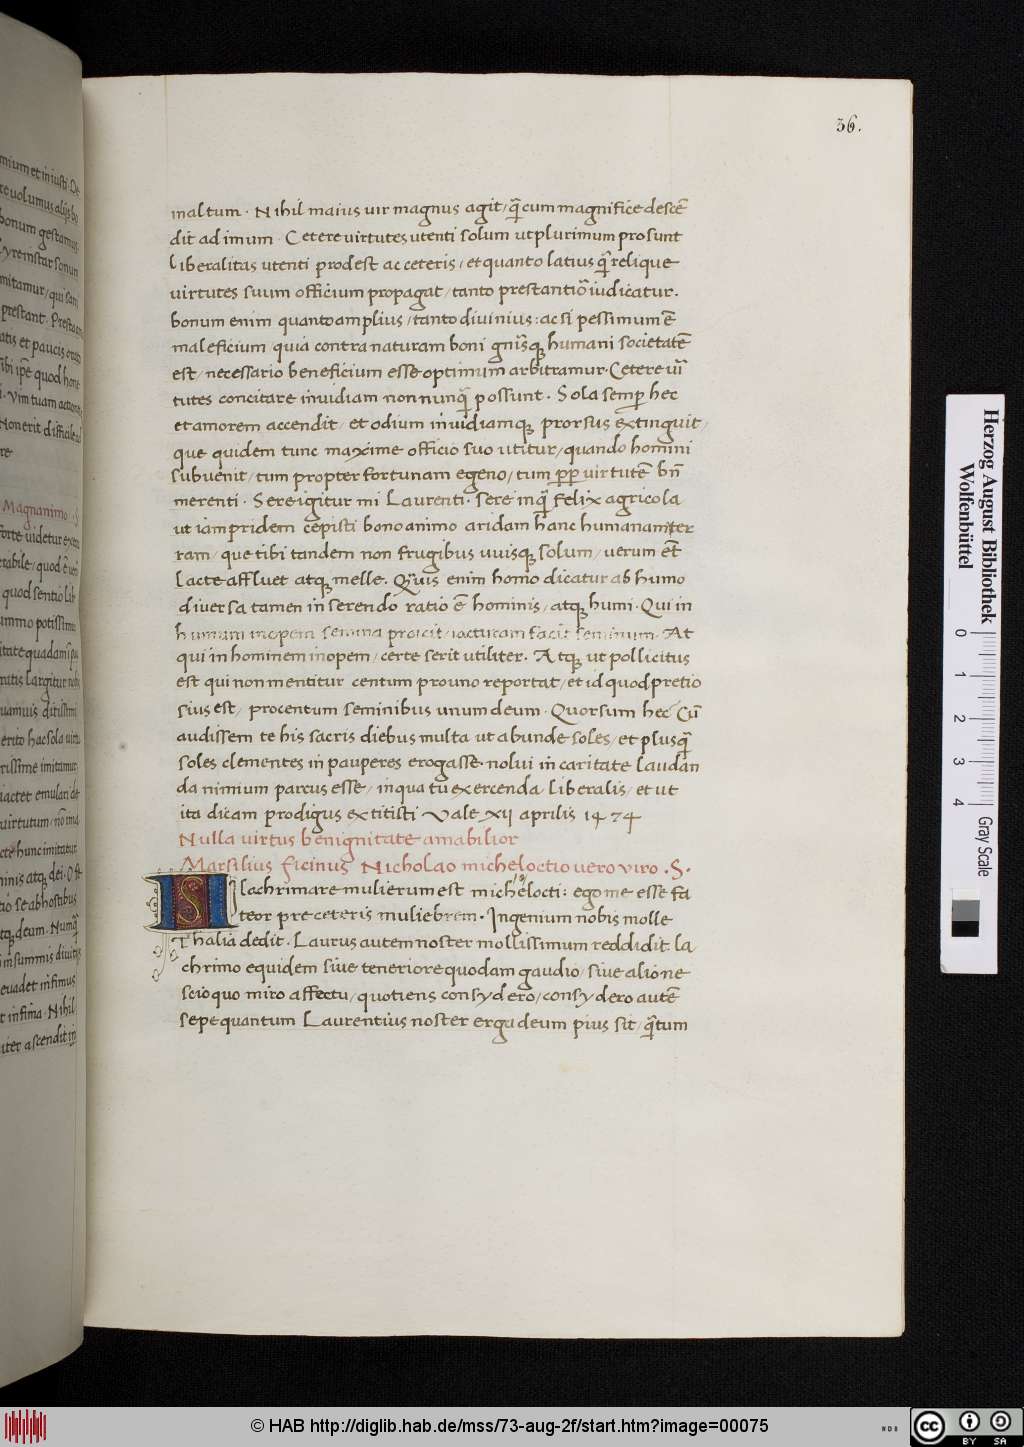 36.
in altum · Nihil maius uir magnus agit / q̄ cum magnifice descē
dit ad imum · Cetere uirtutes utenti solum ut plurimum prosunt
liberalitas utenti prodest ac ceteris / et quanto latius q̄ relique
uirtutes suum officium propagat / tanto prestantiōr iudicatur .
bonum enim quanto amplius / tanto diuinius : ac si pessimum ē
maleficium quia contra naturam boni gnīsqꝫ humani societatē
est / necessario beneficium esse optimum arbitramur · Cetere uīr
tutes concitare inuidiam non nunq̄ possunt · Sola semꝑ hec
et amorem accendit / et odium inuidiamqꝫ prorsus extinguit /
que quidem tunc maxime officio suo utitur / quando homini
subuenit / tum propter fortunam egeno / tum ꝓpꝑ uirtutē bn̄
merenti · Sere igitur mi Laurenti · sere inq̄ felix agricola
ut iampridem cepisti bono animo aridam hanc humanam ter
ram / que tibi tandem non frugibus uuisqꝫ solum / uerum et̄
lacte affluet atqꝫ melle . Q̄uis enim homo dicatur ab humo
diuersa tamen in serendo ratio ē hominis / atqꝫ humi · Qui in
humum inopem semina proicit / iacturam facit seminum · At
qui in hominem inopem / certe serit utiliter . Atqꝫ ut pollicitus
est qui non mentitur centum pro uno reportat / et id quod pretio
sius est / pro centum seminibus unum deum · Quorsum hec · Cū
audissem te his sacris diebus multa ut abunde soles / et plusq̄
soles clementes in pauperes erogasse nolui in caritate laudan
da nimium parcus esse / in qua tu exercenda liberalis / et ut
ita dicam prodigus extitisti Vale XII aprilis 1474
Nulla uirtus benignitate amabilior
Marsilius ficinus Nicholao micheloctio uero uiro . S .
SI lachrimare mulierum est michelocti : ego me esse fa
teor pre ceteris muliebrem . Ingenium nobis molle
Thalia dedit . Laurus autem noster mollissimum reddidit . la
chrimo equidem siue teneriore quodam gaudio / siue alio ne
scio quo miro affectu / quotiens consydero / consydero autē
sepe quantum Laurentius noster erga deum pius sit / q̄tum
Herzog August Bibliothek
Wolfenbüttel
0 1 2 3 4
Gray Scale
© HAB http://diglib.hab.de/mss/73-aug-2f/start.htm?image=00075
WDB
cc BY SA